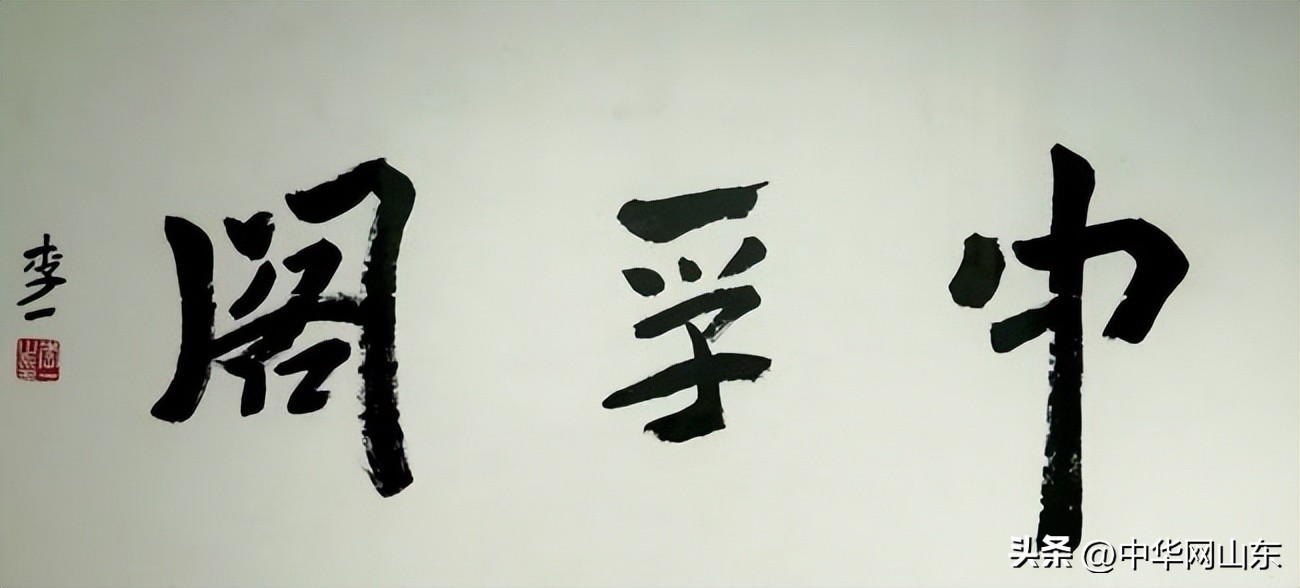 中孚阁
李一
头条 @中华网山东